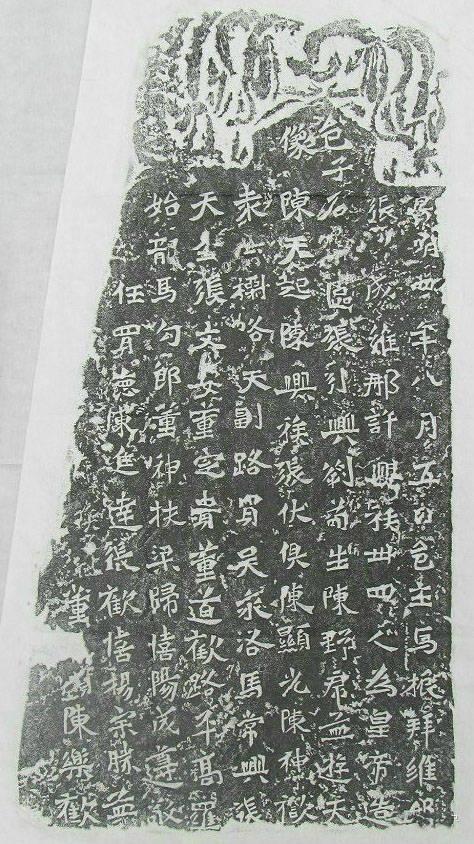 景明四年八月五日邑主馬振拜維那
張成維那許興族卅四人為皇帝造
邑子石區張引興劉苟生陳野君孟遊天
像陳天起陳興族張伏俱陳顯光陳神歡
欄路天副路買吴永洛馬常興張
天生張文安董定貴董道歡路平高羅
始龍馬勾郎董神扶梁歸憘陽成遵敬
任買德陳進達張歡憘楊宗勝孟
董陳樂歡